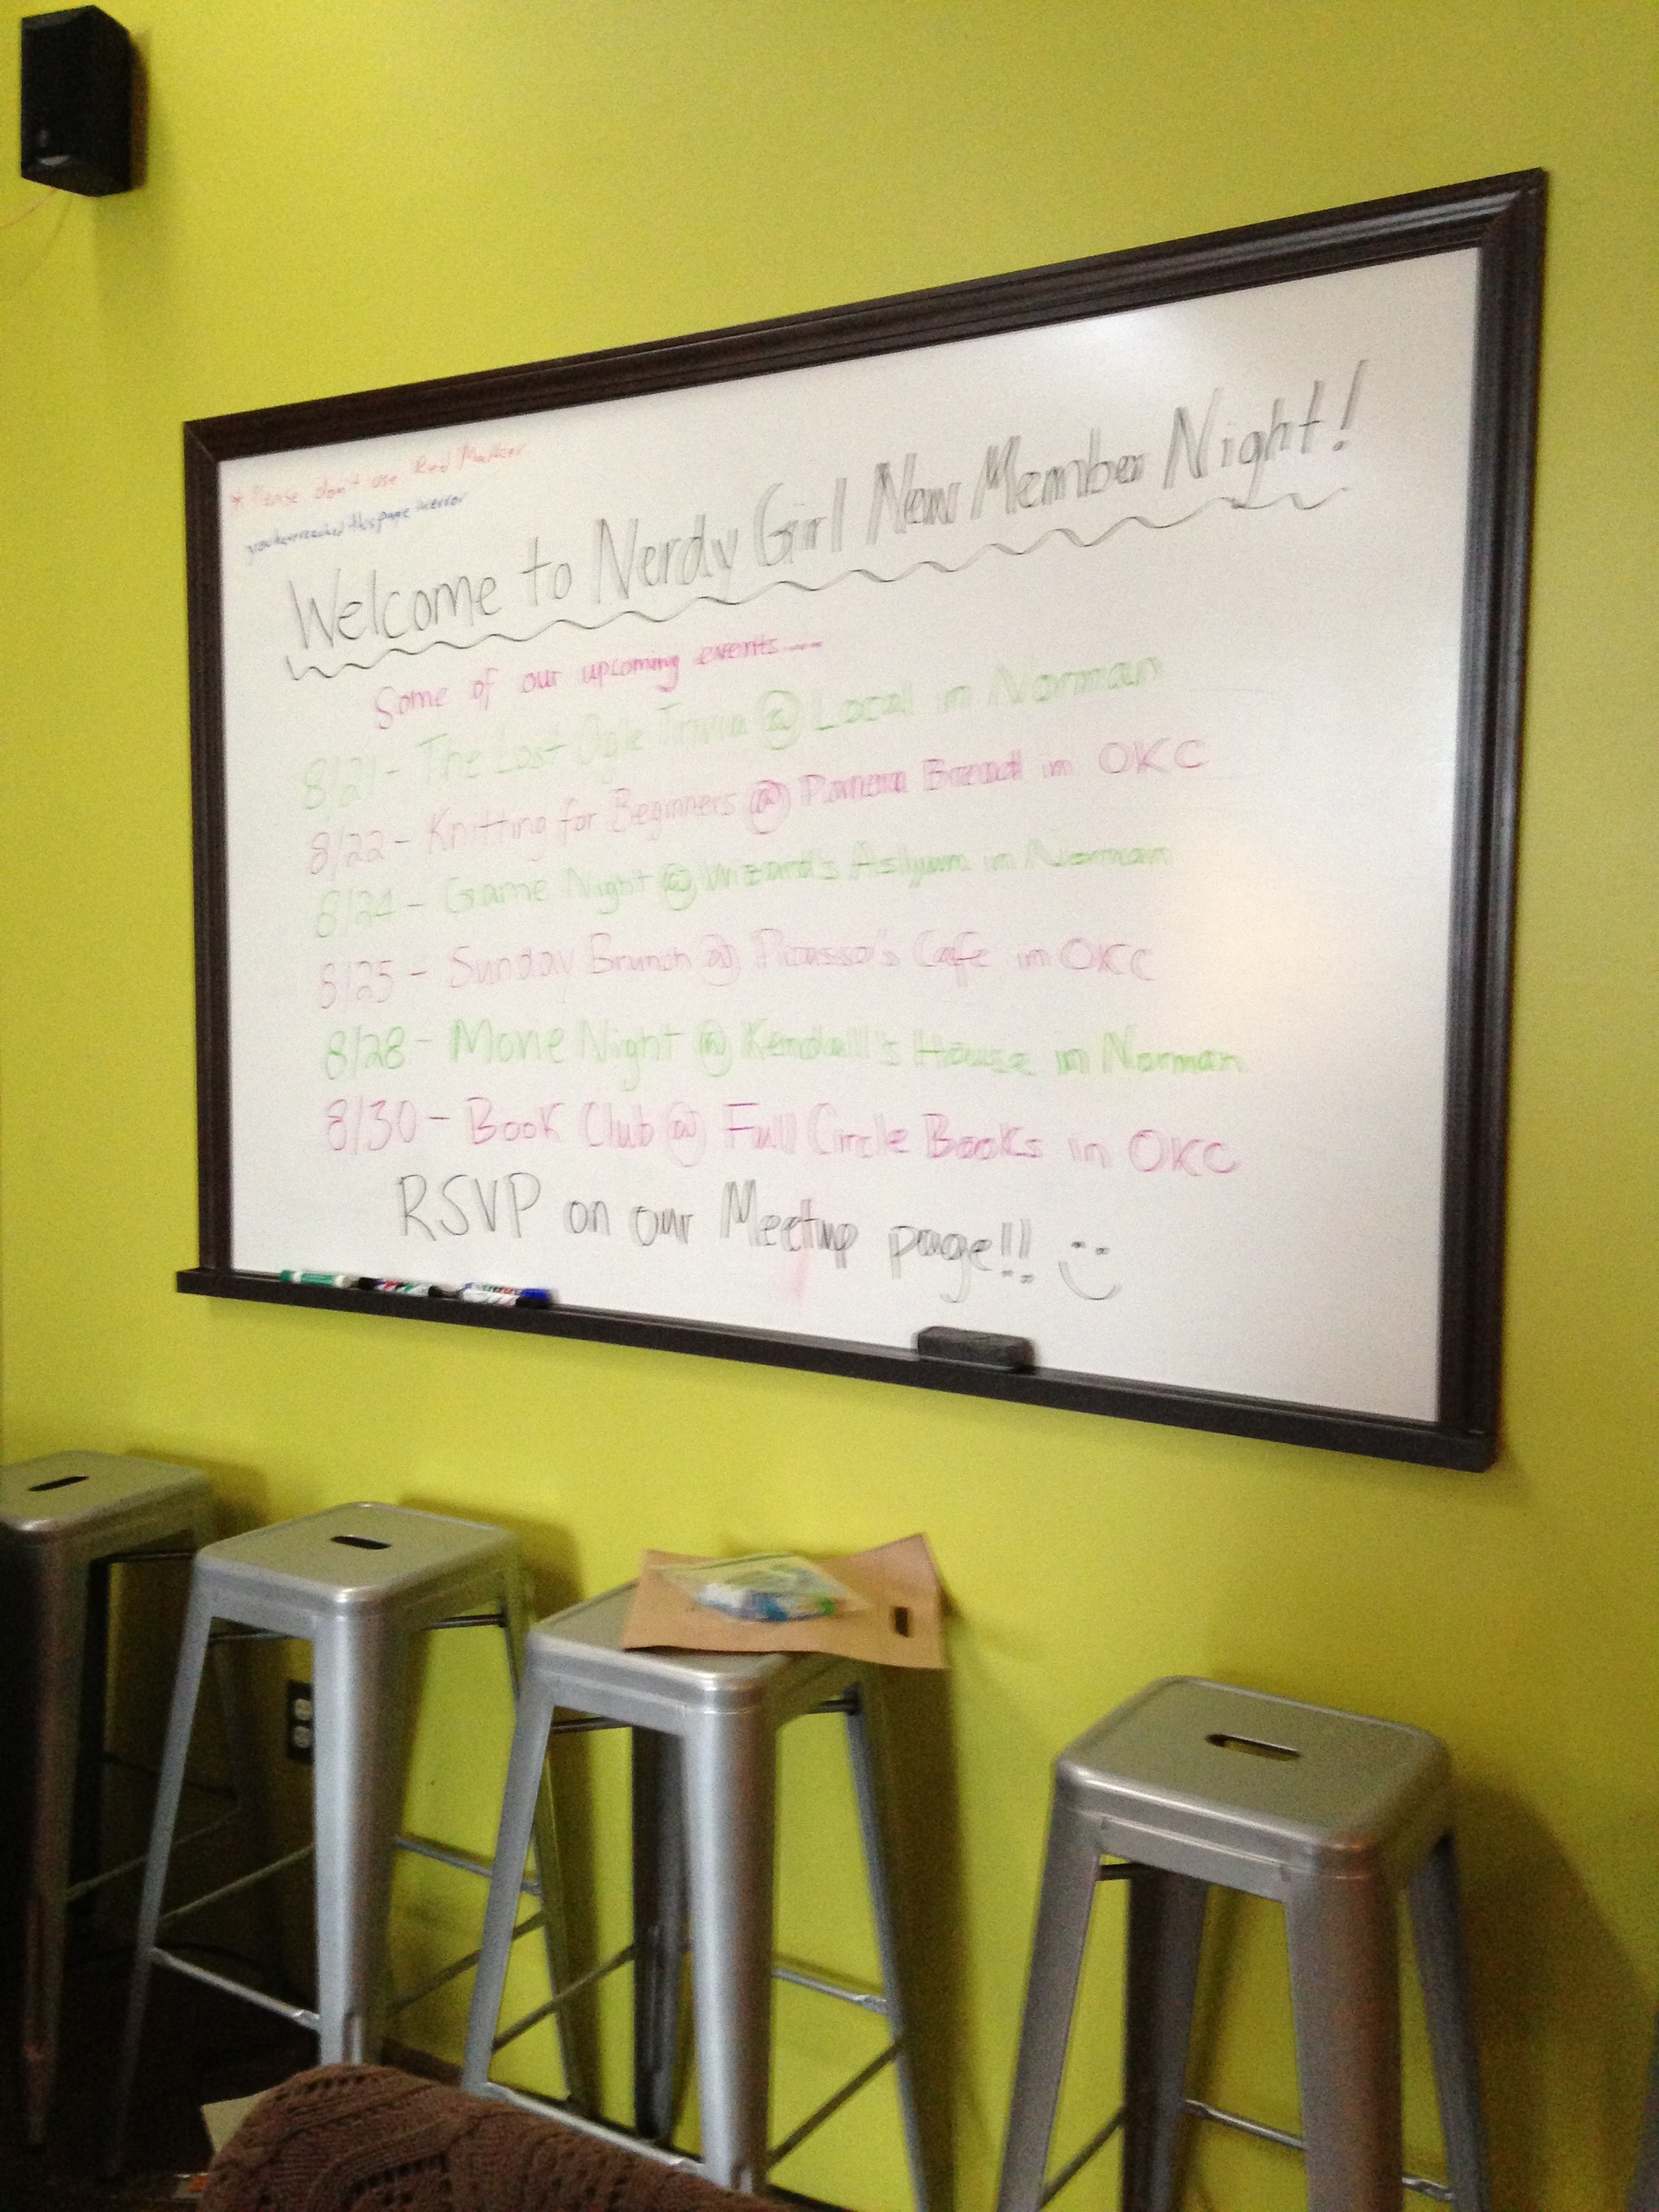 * Please don't use Red Marker
Welcome to Nerdy Girl New Member Night!
Some of our upcoming events....
8/21 - The Lost Ogle Trivia @ Local in Norman
8/22 - Knitting for Beginners @ Panera Bread in OKC
8/24 - Game Night @ Wizard's Asylum in Norman
8/25 - Sunday Brunch @ Picasso's Cafe in OKC
8/28 - Movie Night @ Kendall's House in Norman
8/30 - Book Club @ Full Circle Books in OKC
RSVP on our Meetup page!!! :)